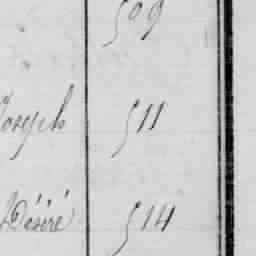 509
Joseph 511
Désiré 514